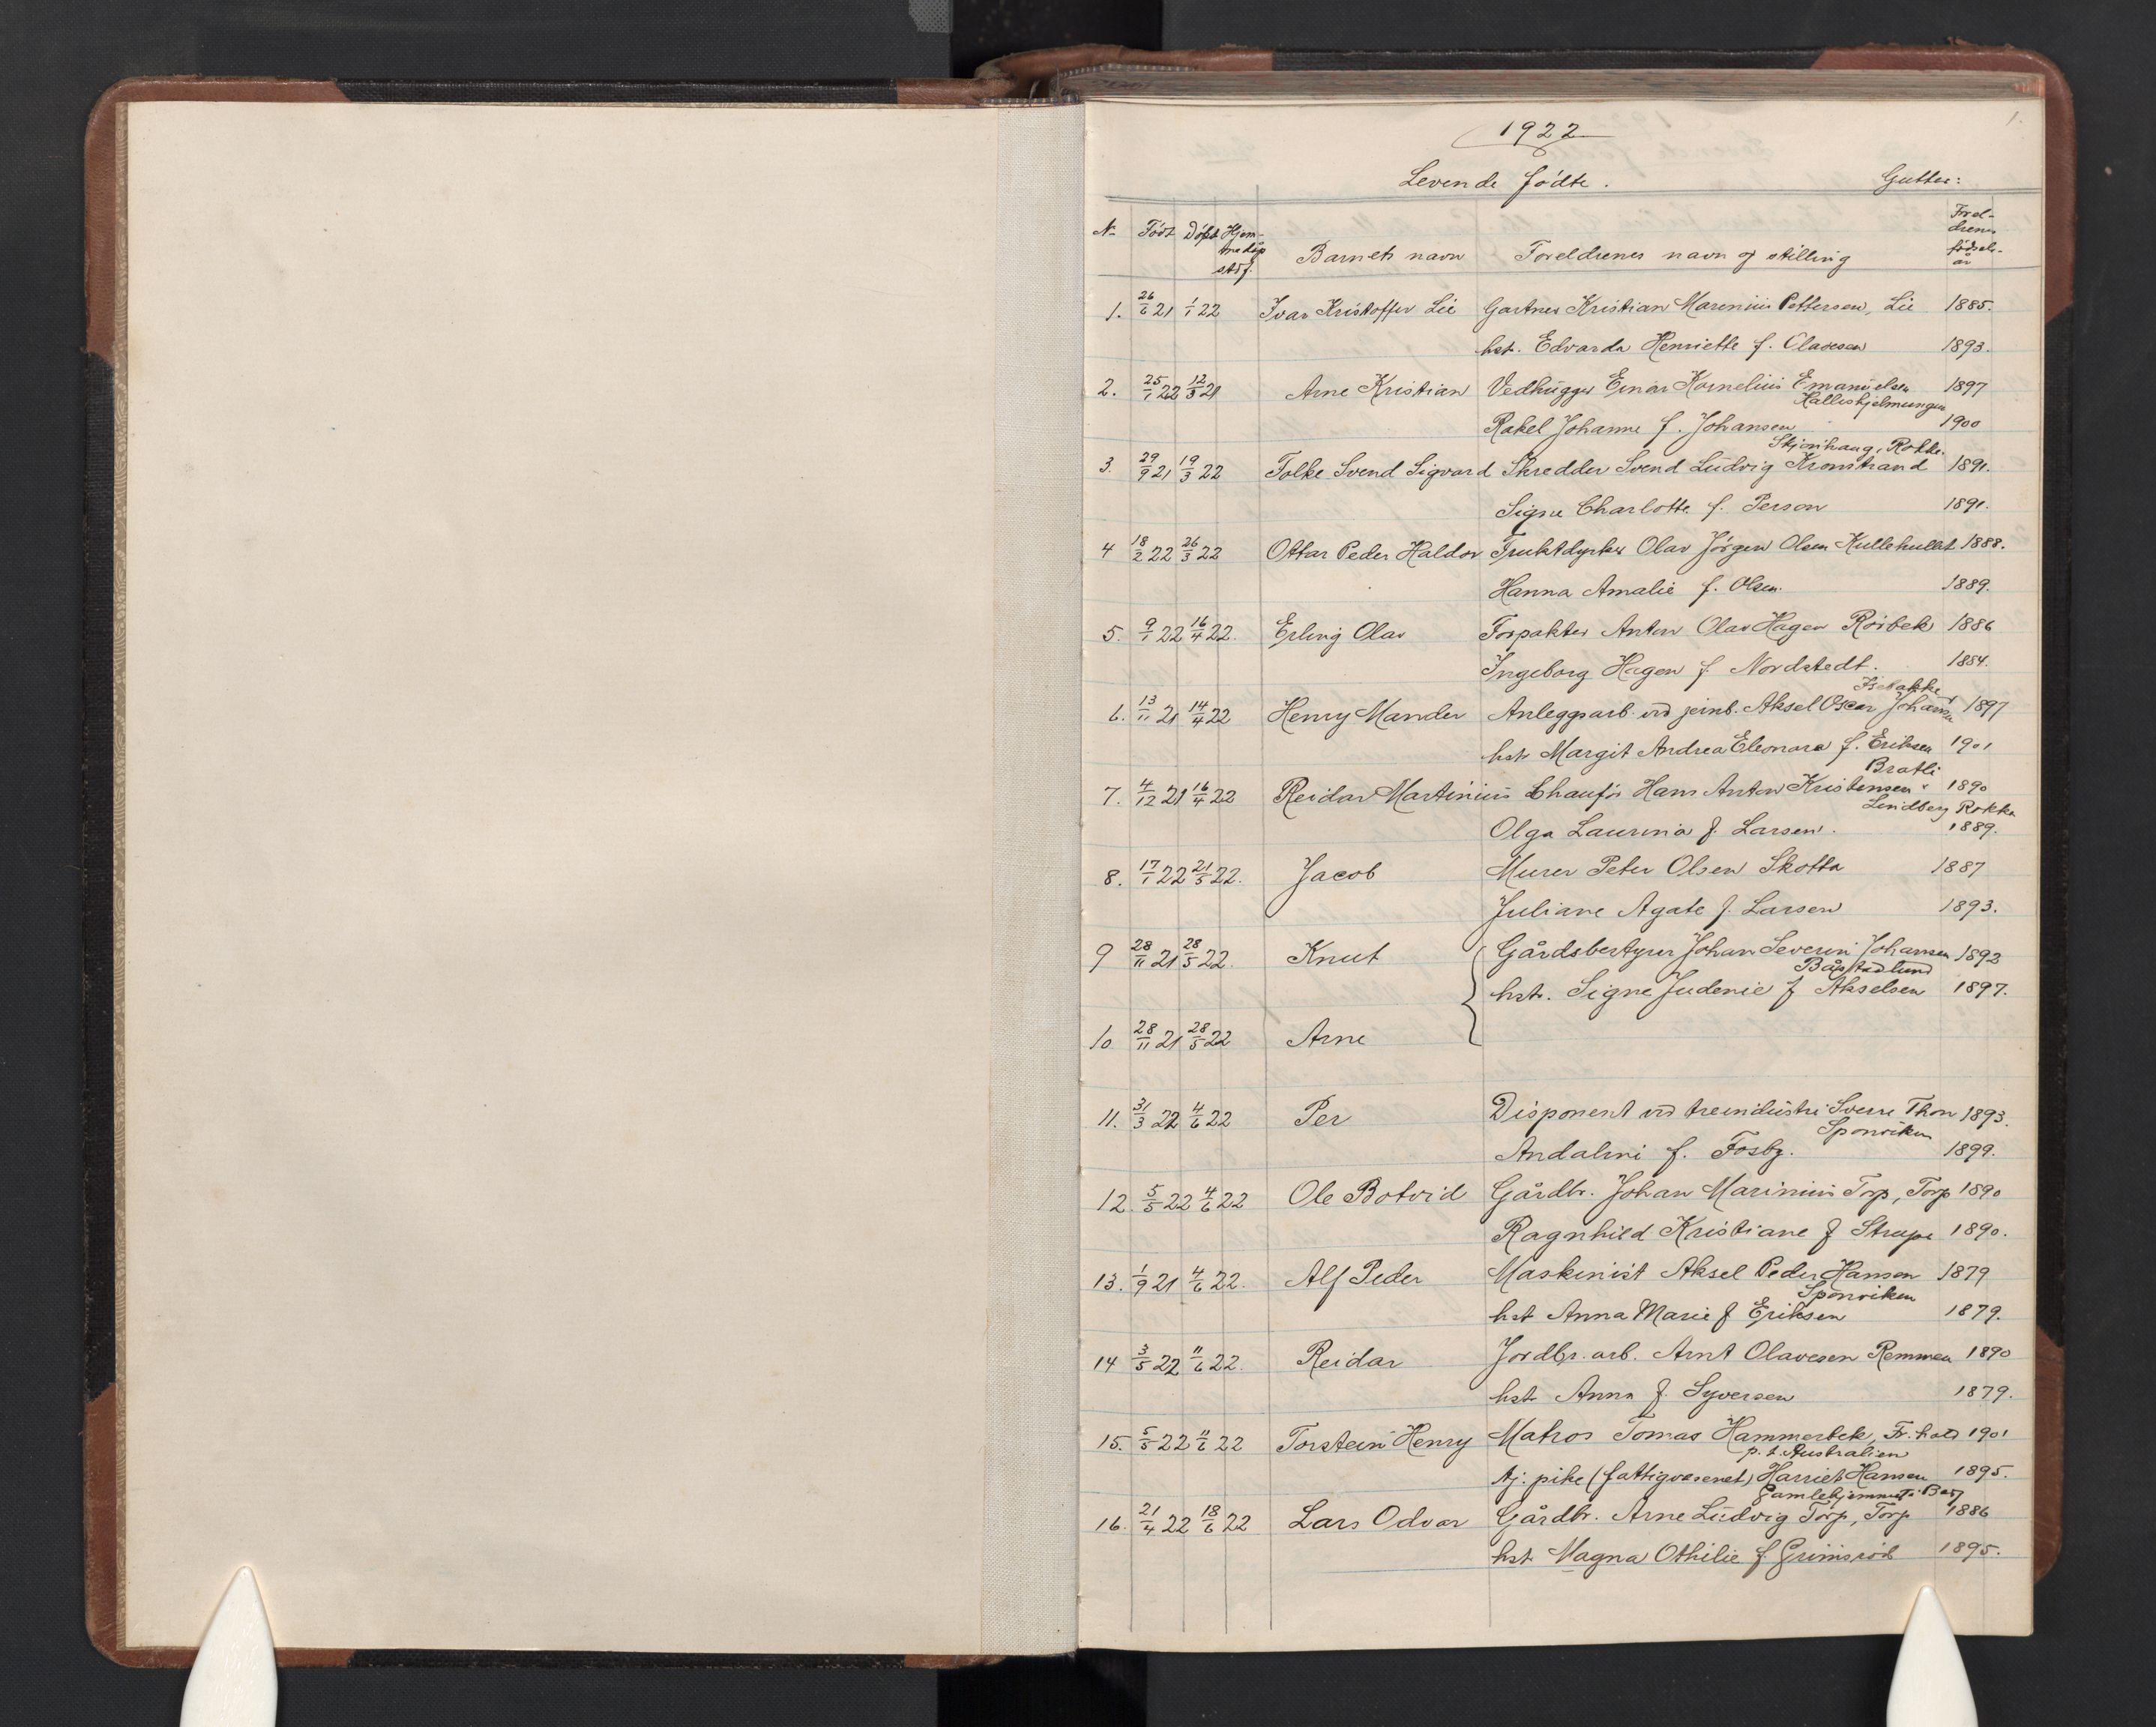 1.
1922
Levende fødte. Gutter:
No Født Døpt Hjemmedøp stdf. Barnets navn Foreldrenes navn og stilling Foreldrenes fødselsår
1. 26/6 21 1/1 22 Ivar Kristoffer Lie Gartner Kristian Marenius Pettersen, Lie 1885.
hst. Edvarda Henriette f. Olavesen 1893.
2. 25/1 22 12/3 21 Arne Kristian Vedhugger Einar Kornelius Emanuelsen 1897
Rakel Johanne f. Johansen 1900
3. 29/9 21 19/3 22 Folke Svend Sigvard Skredder Svend Ludvig Kronstrand 1891.
Signe Charlotte f. Person 1891.
4 18/2 22 26/3 22 Ottar Peder Haldor Fruktdyrker Olav Jørgen Olsen 1888.
Hanna Amalie f. Olsen. 1889.
5. 9/1 22 16/4 22. Erling Olav Forpakter Anton Olav Hagen Rørbek 1886
Ingeborg Hagen f. Nordstedt. 1884.
6. 13/11 21 14/4 22 Henry Mander Anleggsarb. vd jernb. Aksel Oscar Johansen 1897
hst Margit Andrea Eleonora f. Eriksen 1901
Bratli
7. 4/12 21 16/4 22 Reidar Martinius Chaufør Hans Anton Kristensen 1890
Lindberg Rokke
Olga Laurina f. Larsen. 1889.
8. 17/1 22 21/5 22. Jacob Murer Peter Olsen Skotta 1887
Juliane Agate f. Larsen 1893.
9 28/11 21 28/5 22. Knut Gårdsbestyrer Johan Severin Johansen 1892
Båstadlund
hst. Signe Judenie f Akselsen 1897.
10 28/11 21 28/5 22 Arne
11. 31/3 22 4/6 22 Per Disponent vd treindustri Sverre Thon 1893.
Sponviken
Andalini f. Fosby. 1899.
12. 5/5 22 4/6 22 Ole Botvid Gårdbr. Johan Marinius Torp, Torp 1890
Ragnhild Kristiane f Strupe 1890.
13. 1/9 21 4/6 22. Alf Peder Maskinist Aksel Peder Hansen 1879
Sponviken
hst Anna Marie f Eriksen 1879.
14 3/5 22 11/6 22. Reidar Jordbr. arb. Arnt Olavesen Remmen 1890
hst Anna f. Syversen 1879.
15. 5/5 22 11/6 22 Torstein Henry Matros Tomas Hammerbek, Fr.hald 1901
p. t. Australien
Tj: pike (fattigvesenet) Harriet Hansen 1895.
Gamlehjemmet i Berg
16. 21/4 22 18/6 22 Lars Odvar Gårdbr. Arne Ludvig Torp, Torp 1886
hst Magna Othilie f. Grimsrød 1895.